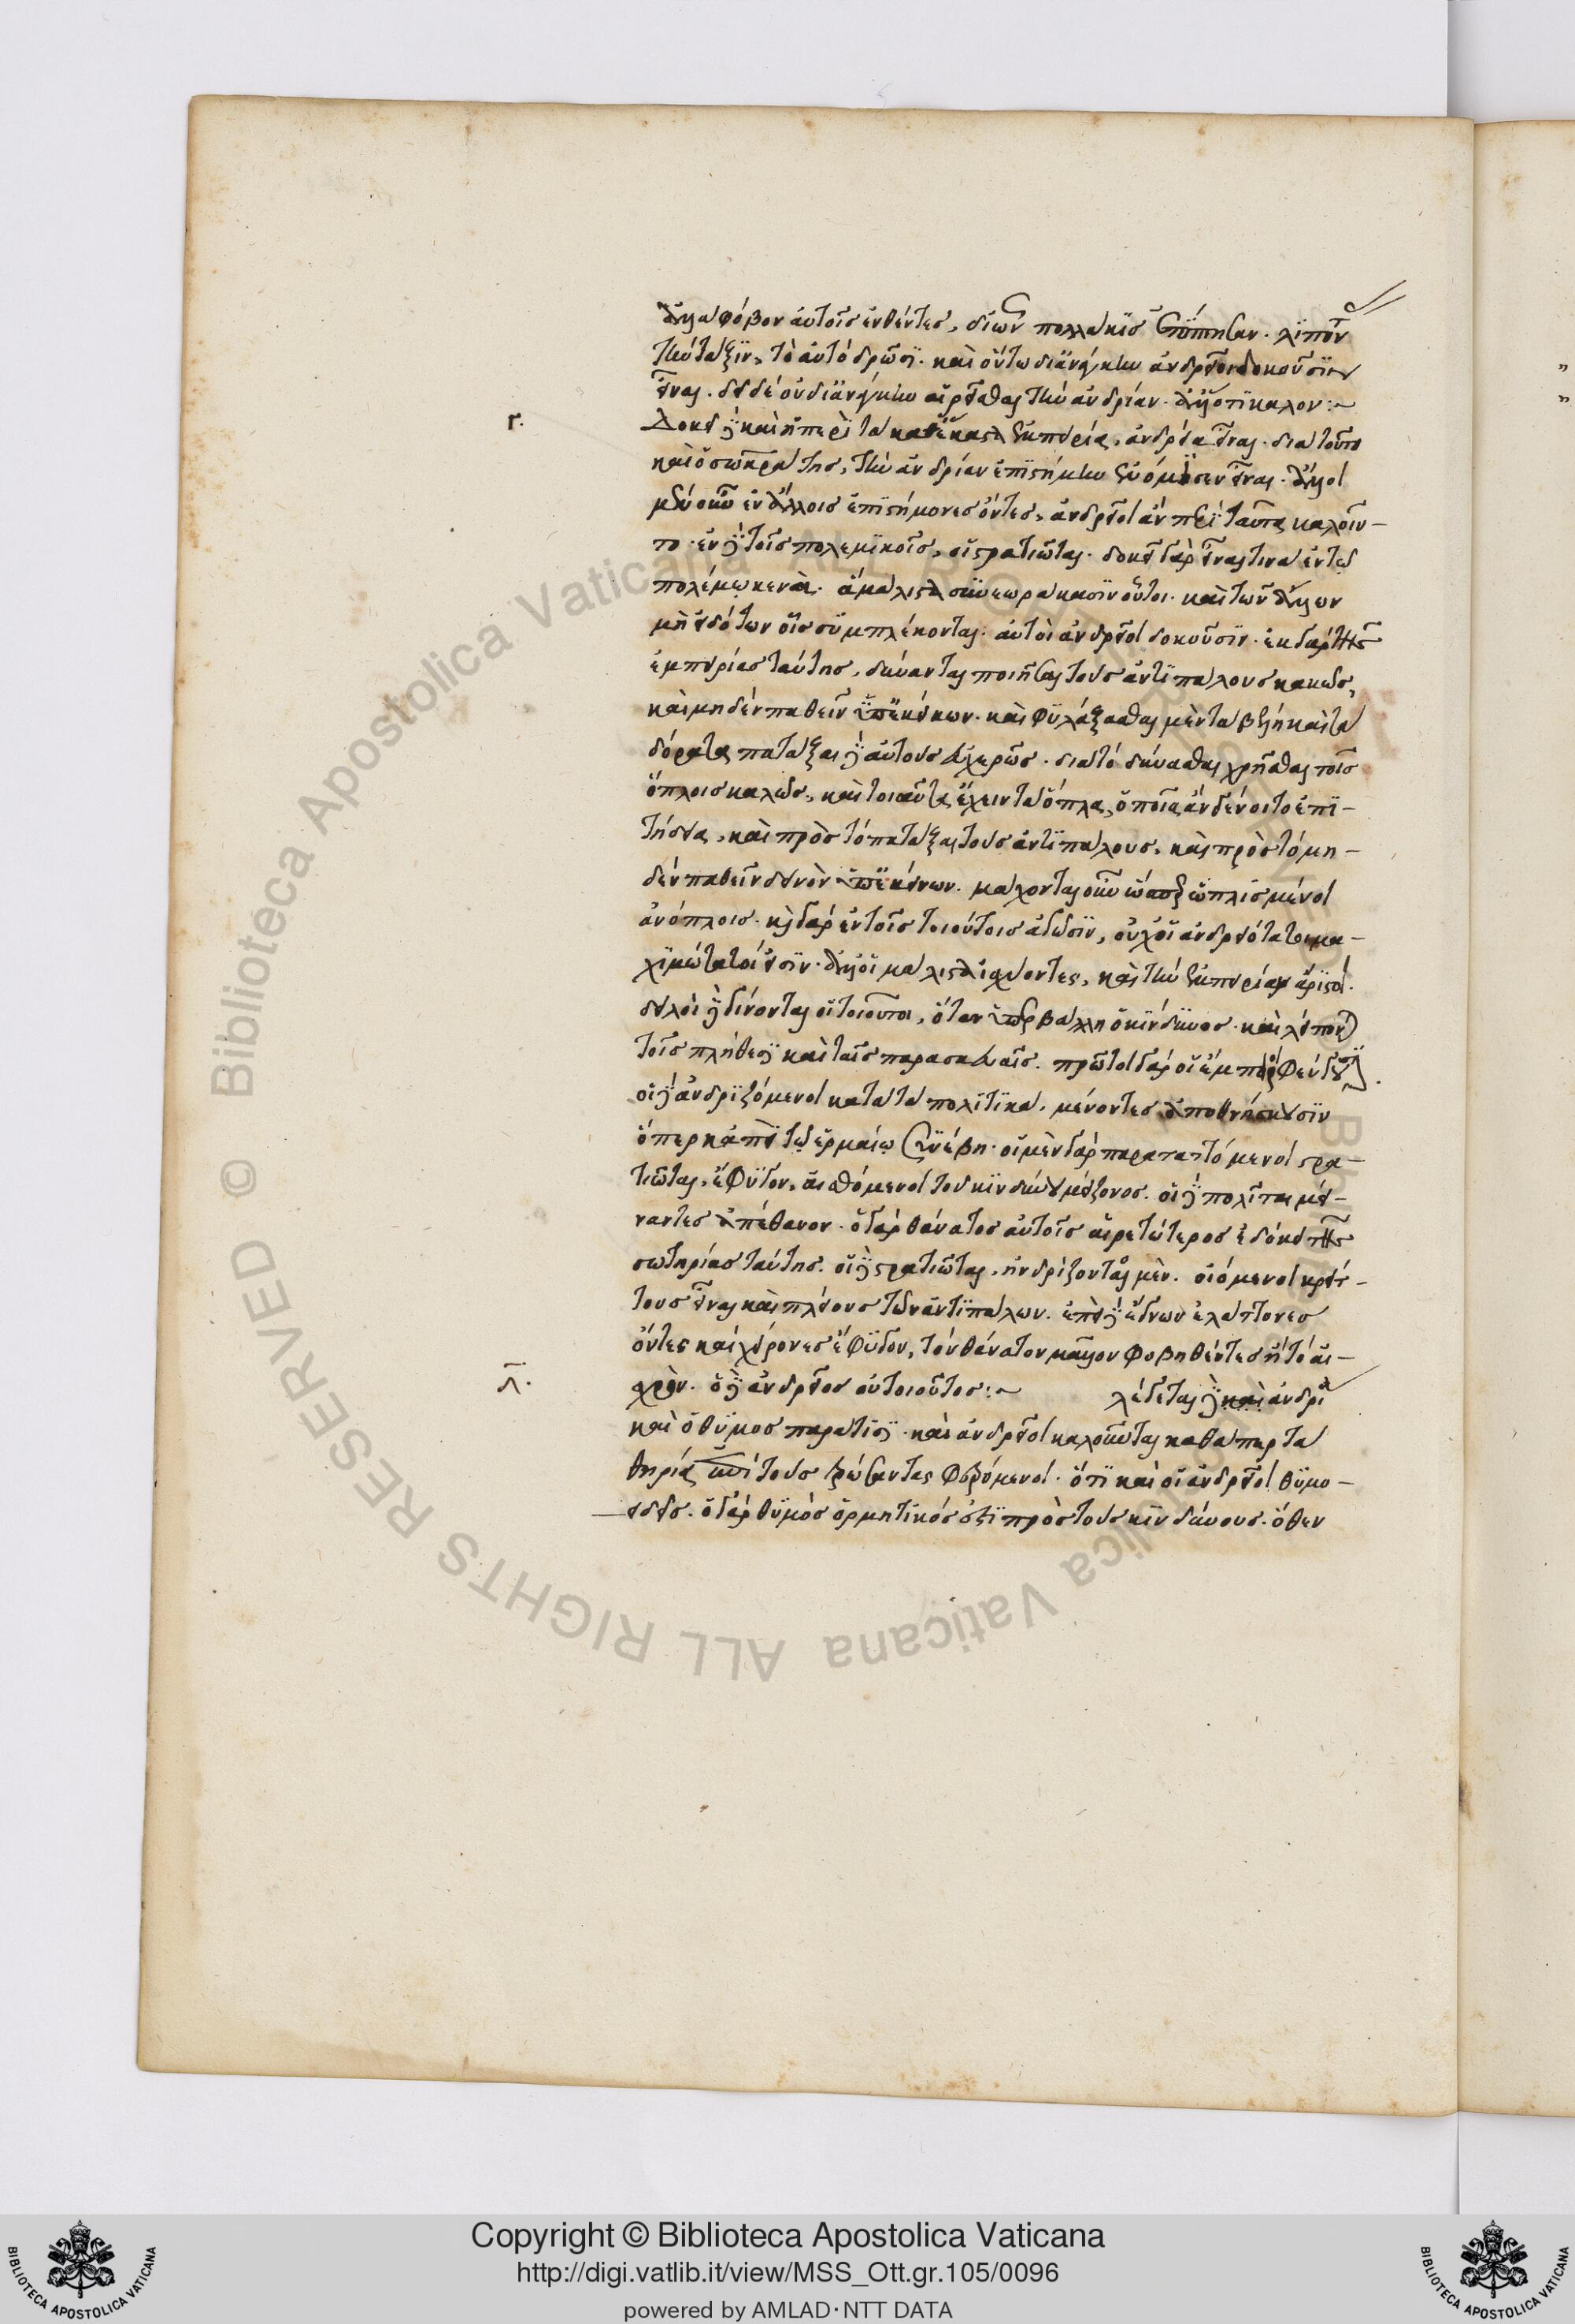 ἀλλὰ φόβον αὐτοῖς ἐνθέντες, δι' ὧν πολλάκις λιποῦσι
τὴν τάξιν, τὸ αὐτὸ δρῶσι. καὶ οὕτω δι' ἀνάγκην ἀνδρεῖοι δοκοῦσιν
εἶναι. δεῖ δὲ οὐ δι' ἀνάγκην αἱρεῖσθαι τὴν ἀνδρίαν. ἀλλ' ὅτι καλόν:~
γ.
Δοκεῖ δὲ καὶ ἡ περὶ τὰ καθ' ἕκαστα ἐμπειρία, ἀνδρεία εἶναι. διὰ τοῦτο
καὶ ὁ σωκράτης, τὴν ἀνδρίαν ἐπιστήμην ἐνόμισεν εἶναι. ἄλλοι
μὲν οὖν ἐν ἄλλοις ἐπιστήμονες ὄντες, ἀνδρεῖοι ἂν περὶ ταῦτα καλοῖν-
το. ἐν δὲ τοῖς πολεμικοῖς, οἱ στρατιῶται. δοκεῖ γὰρ εἶναι τινα ἐν τῷ
πολέμῳ κενά. ἃ μάλιστα συνεωράκασιν οὗτοι. καὶ τῶν ἄλλων
μὴ εἰδότων οἷς συμπλέκονται. αὐτοὶ ἀνδρεῖοι δοκοῦσιν. ἐκ γὰρ τῆς
ἐμπειρίας ταύτης, δύνανται ποιῆσαι τοὺς ἀντιπάλους κακῶς,
καὶ μηδὲν παθεῖν ὑπ' ἐκείνων. καὶ φυλάξασθαι μὲν τὰ βέλη καὶ τὰ
δόρατα πατάξαι δὲ αὐτοὺς εὐχερῶς. διὰ τὸ δύνασθαι χρῆσθαι τοῖς
ὅπλοις καλῶς, καὶ τοιαῦτα ἔχειν τὰ ὅπλα, ὁποῖα ἂν γένοιτο ἐπι-
τήδεια, καὶ πρὸς τὸ πατάξαι τοὺς ἀντιπάλους, καὶ πρὸς τὸ μη-
δὲν παθεῖν δεινὸν ὑπ' ἐκείνων. μάχονται οὖν ὥσπερ ὡπλισμένοι
ἀνόπλοις. καὶ γὰρ ἐν τοῖς τοιούτοις ἀγῶσιν, οὐχ' οἱ ἀνδρειότατοι μα-
χιμώτατοί εἰσιν. ἀλλ' οἱ μάλιστα ἰσχύοντες, καὶ τὴν ἐμπειρίαν ἄριστοι.
δειλοὶ δὲ γίνονται οἱ τοιοῦτοι, ὅταν ὑπερβάλλῃ ὁ κίνδυνος. καὶ λείπονται
τοῖς πλήθεσι καὶ ταῖς παρασκευαῖς. πρῶτοι γὰρ οἱ ἔμπειροι φεύγουσι.
οἱ δὲ ἀνδριζόμενοι κατὰ τὰ πολιτικά, μένοντες ἀποθνήσκουσιν
ὅπερ κἀπὶ τῷ ἑρμαίῳ συνέβη. οἱ μὲν γὰρ παραταττόμενοι στρα-
τιῶται, ἔφυγον, αἰσθόμενοι τοῦ κινδύνου μείζονος. οἱ δὲ πολῖται μεί-
ναντες ἀπέθανον. ὁ γὰρ θάνατος αὐτοῖς αἱρετώτερος ἐδόκει τῆς
σωτηρίας ταύτης. οἱ δὲ στρατιῶται, ἀνδρίζονται μὲν. οἰόμενοι κρείτ-
τους εἶναι καὶ πλείους τῶν ἀντιπάλων. ἐπεὶ δὲ ἔγνων ἐλάττονες
ὄντες καὶ χείρονες ἔφυγον, τὸν θάνατον μᾶλλον φοβηθέντες ἢ τὸ αἰ-
σχρόν. ὁ δὲ ἀνδρεῖος οὐ τοιοῦτος:~ λέγεται δὲ καὶ ἀνδρία
δ.
καὶ ὁ θυμὸς παρά τισι. καὶ ἀνδρεῖοι καλοῦνται καθάπερ τὰ
θηρία ἐπὶ τοὺς τρώσαντας φερόμενοι. ὅτι καὶ οἱ ἀνδρεῖοι θυμο-
ειδεῖς. ὁ γὰρ θυμὸς ὁρμητικός ἐστι πρὸς τοὺς κινδύνους. ὅθεν
Copyright © Biblioteca Apostolica Vaticana
http://digi.vatlib.it/view/MSS_Ott.gr.105/0096
powered by AMLAD·NTT DATA